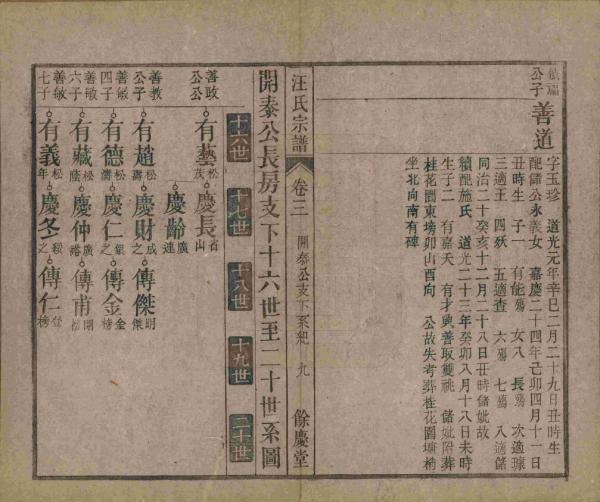 公子 善道
字玉珍 道光元年辛巳二月二十九日丑時生
配儲公永義女 嘉慶二十四年己卯四月十一日
丑時生 子一 有能殤 女八 長殤 次適璩
三適王 四殀 五適查 六殤 七殤 八適儲
同治二十癸亥十二月二十八日丑時儲妣故
續配施氏 道光二十三年癸卯八月十八日未時
生子二 有嘉夭 有才興善取雙祧 儲妣附葬
桂花園東塝卯山酉向 公故失考葬桂花園塘梢
坐北向南有碑
汪氏宗譜 卷三 開泰公支下系紀 九 餘慶堂
開泰公長房支下十六世至二十世系圖
十六世 十七世 十八世 十九世 二十世
善政公公 有藝松茂 慶長省山
慶齡廣連
善教公子 有趙松壽 慶財成之 傳傑明傑
善敏四子 有德松濤 慶仁銀之 傳金金榜
善敏六子 有藏松蔭 慶仲廣裕 傳甫開
善敏七子 有義松年 慶冬之 傳仁登榜